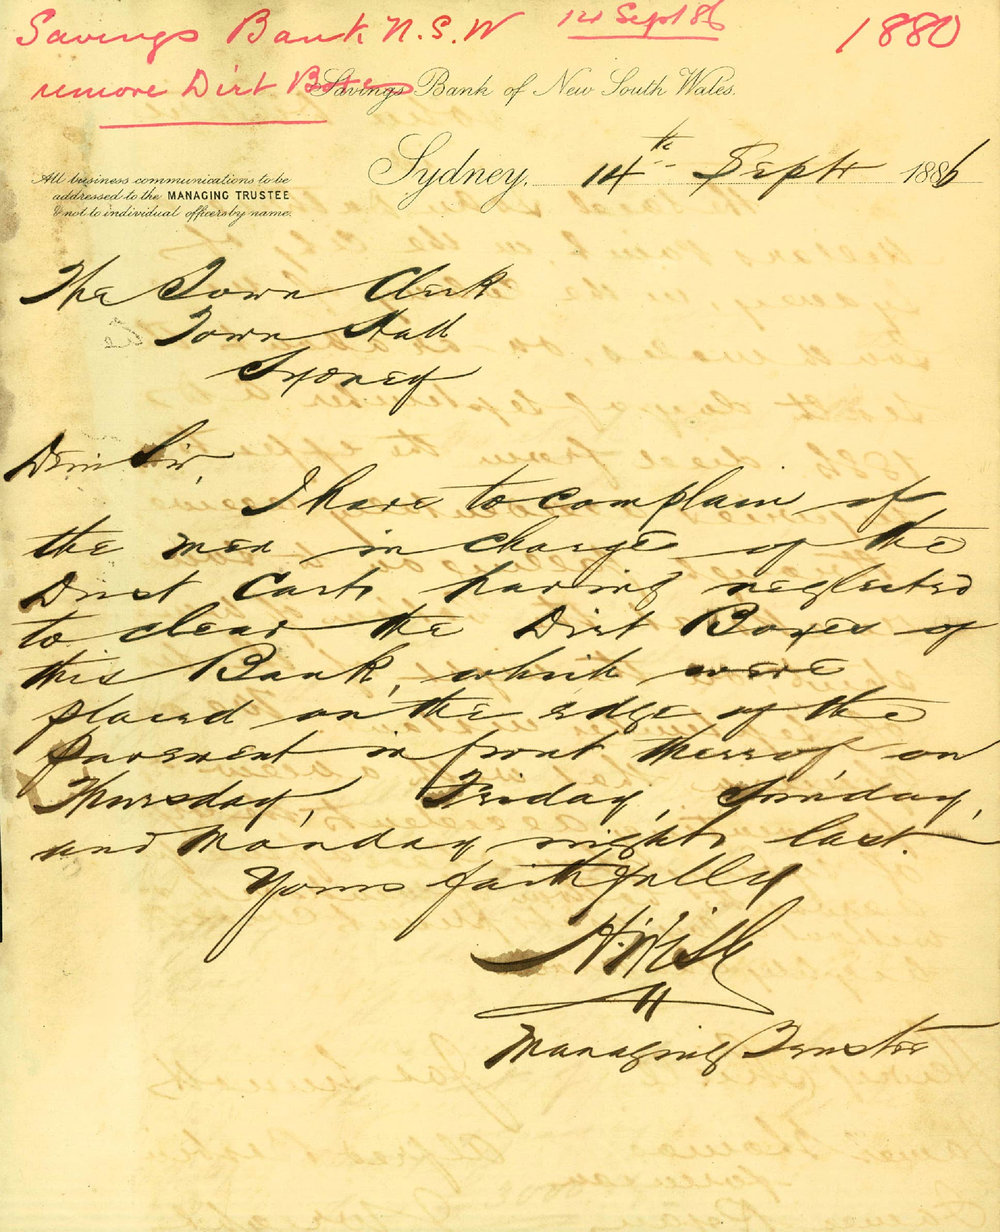 Savings Bank N.S.W 14 Sept 86 1880
remove Dirt Boxes
Savings Bank of New South Wales.
Sydney, 14th Septr 1886
All business communications to be
addressed to the MANAGING TRUSTEE
& not to individual officers by name.
The Town Clerk
Town Hall
Sydney
Dear Sir,
I have to complain of
the men in charge of the
Dust Carts having neglected
to clear the Dirt Boxes of
this Bank, which were
placed on the edge of the
pavement in front thereof on
Thursday, Friday, Sunday,
and Monday nights last.
Yours faithfully
Managing Trustee